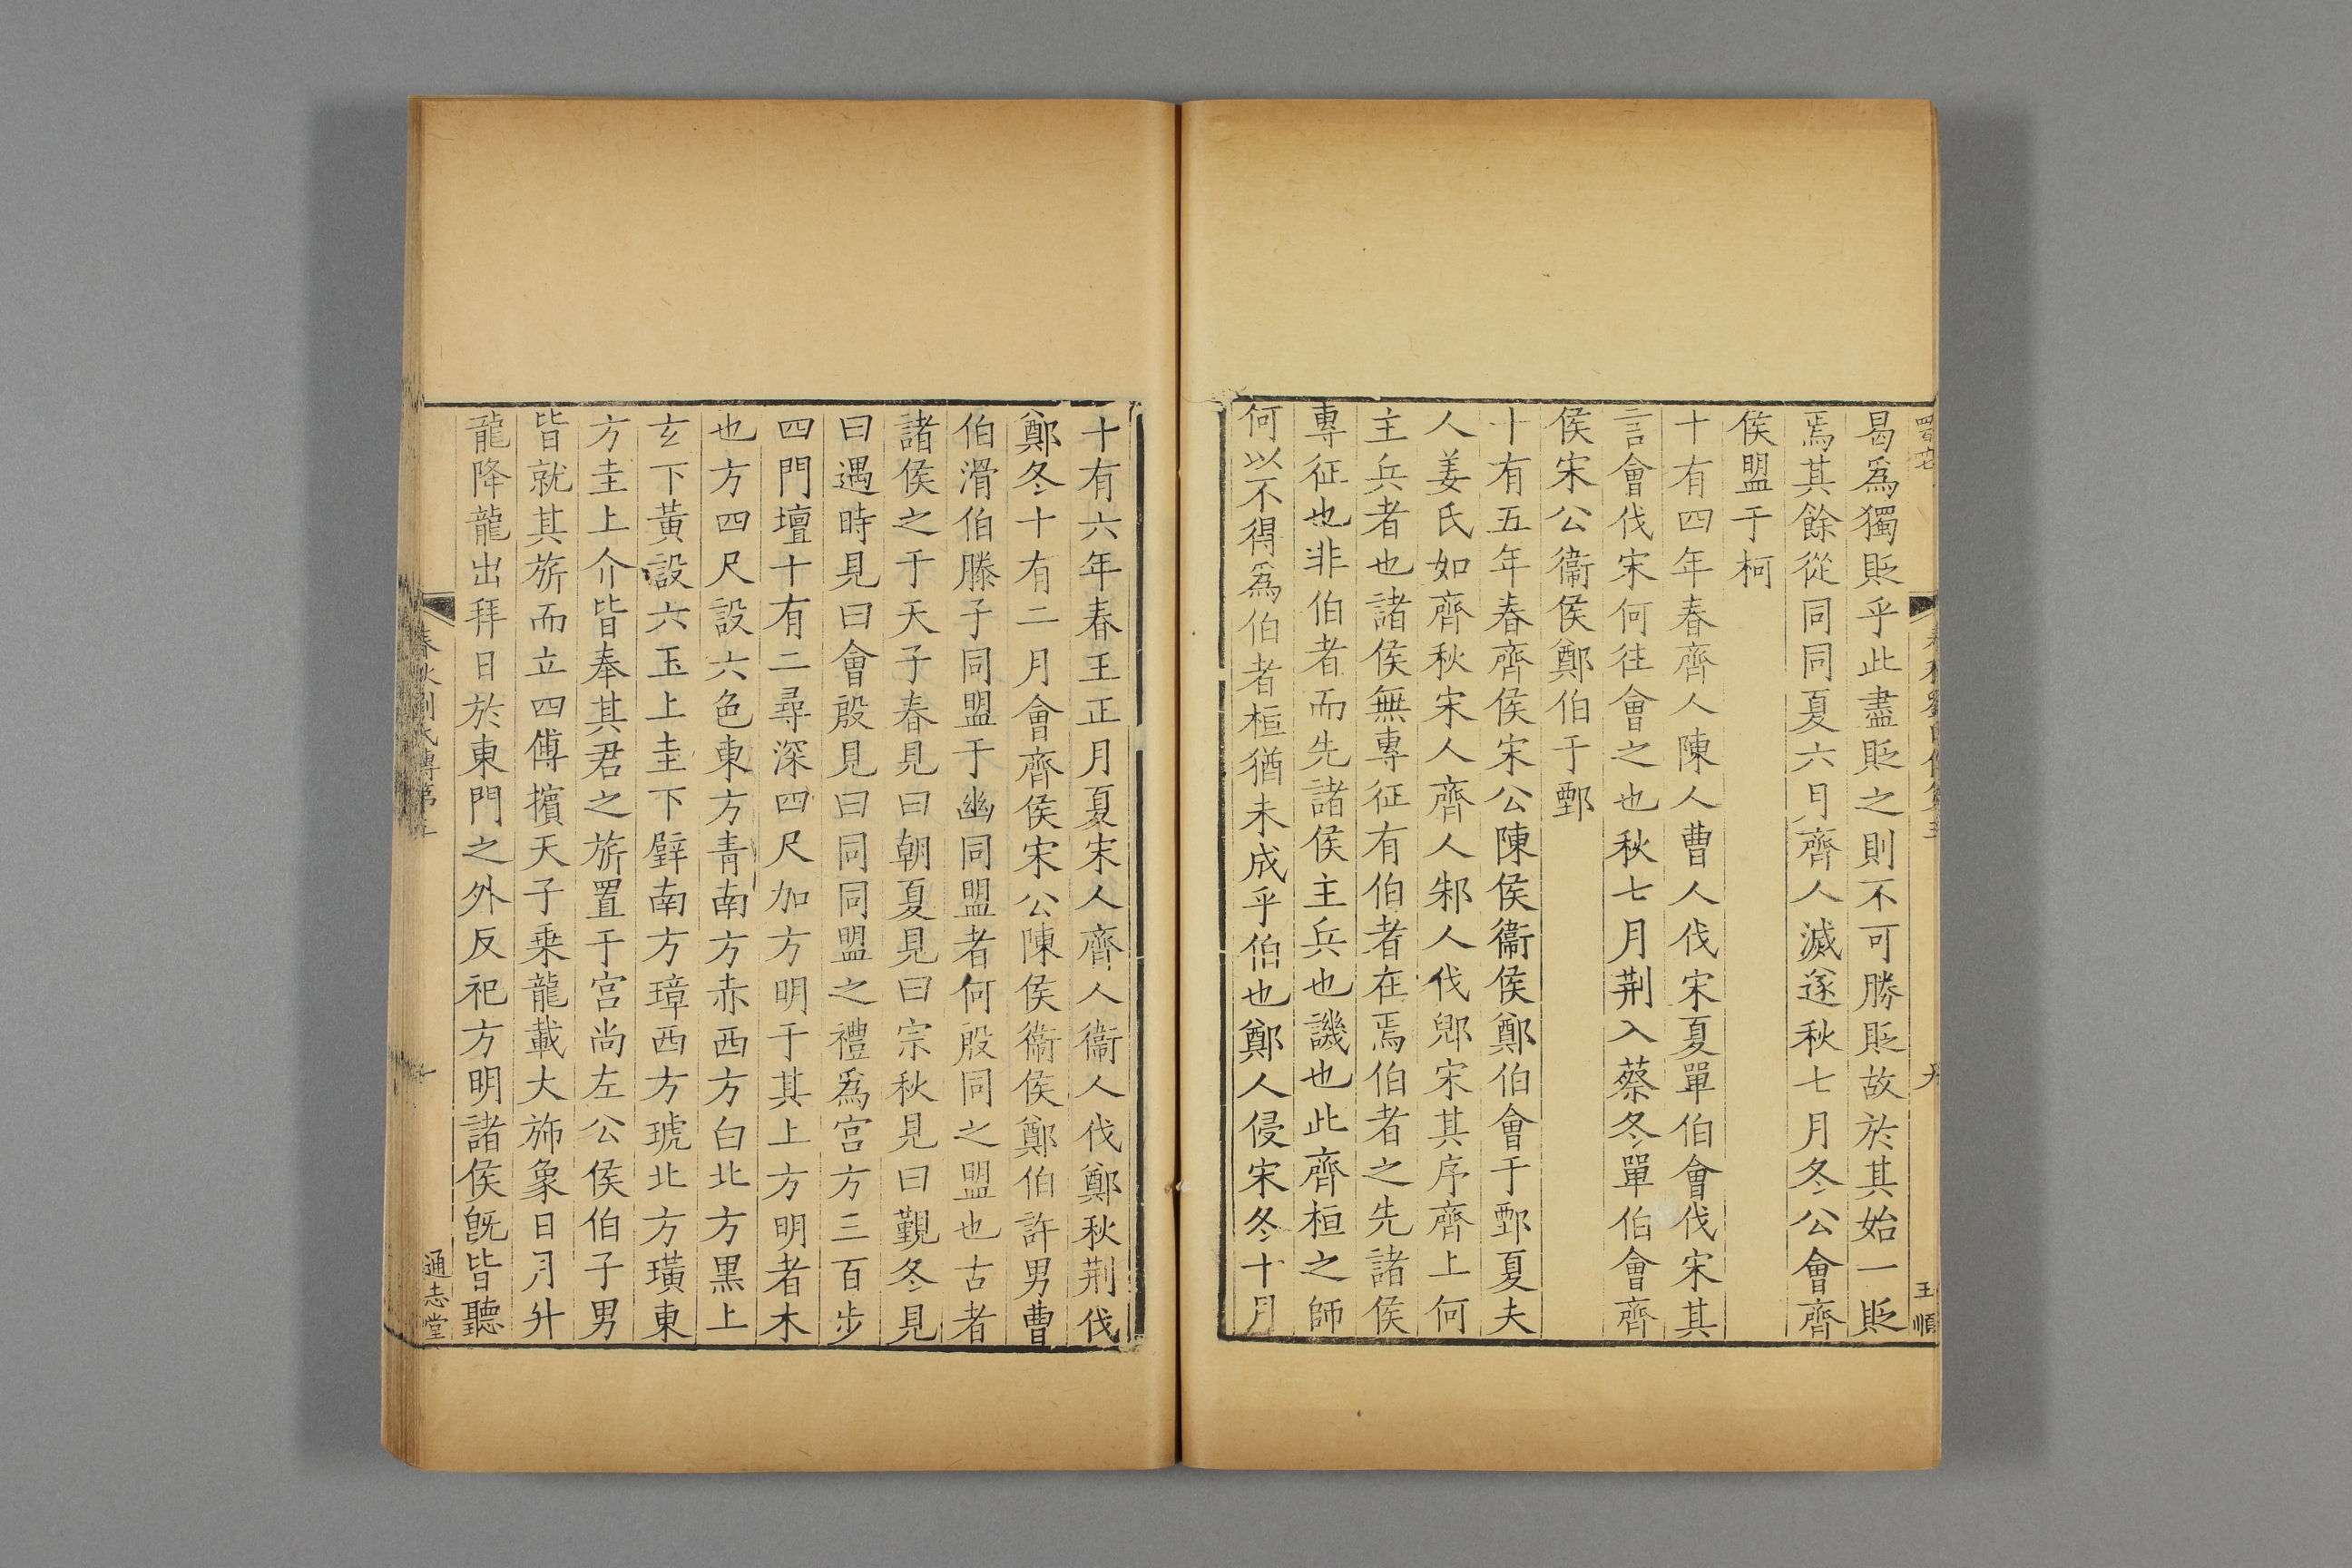 曷爲獨貶乎此盡貶之則不可勝貶故於其始一貶
焉其餘從同同夏六月齊人滅遂秋七月冬公會齊
侯盟于柯
十有四年春齊人陳人曹人伐宋夏單伯會伐宋其
言會伐宋何徃會之也秋七月荆入蔡冬單伯會齊
侯宋公衞侯鄭伯于鄄
十有五年春齊侯宋公陳侯衞侯鄭伯會于鄄夏夫
人姜氏如齊秋宋人齊人邾人伐郳宋其序齊上何
主兵者也諸侯無專征有伯者在焉伯者之先諸侯
專征也非伯者而先諸侯主兵也譏也此齊桓之師
何以不得爲伯者桓猶未成乎伯也鄭人侵宋冬十月
王順
十有六年春王正月夏宋人齊人衞人伐鄭秋荆伐
鄭冬十有二月會齊侯宋公陳侯衞侯鄭伯許男曹
伯滑伯滕子同盟于幽同盟者何殷同之盟也古者
諸侯之于天子春見曰朝夏見曰宗秋見曰覲冬見
曰遇時見曰會殷見曰同同盟之禮爲宫方三百步
四門壇十有二尋深四尺加方明于其上方明者木
也方四尺設六色東方青南方赤西方白北方黑上
玄下黃設六玉上圭下璧南方璋西方琥北方璜東
方圭上介皆奉其君之旂置于宫尚左公侯伯子男
皆就其旂而立四傅擯天子乗龍載大斾象日月升
龍降龍出拜日於東門之外反祀方明諸侯旣皆聽
春秋劉氏傳第
通志堂